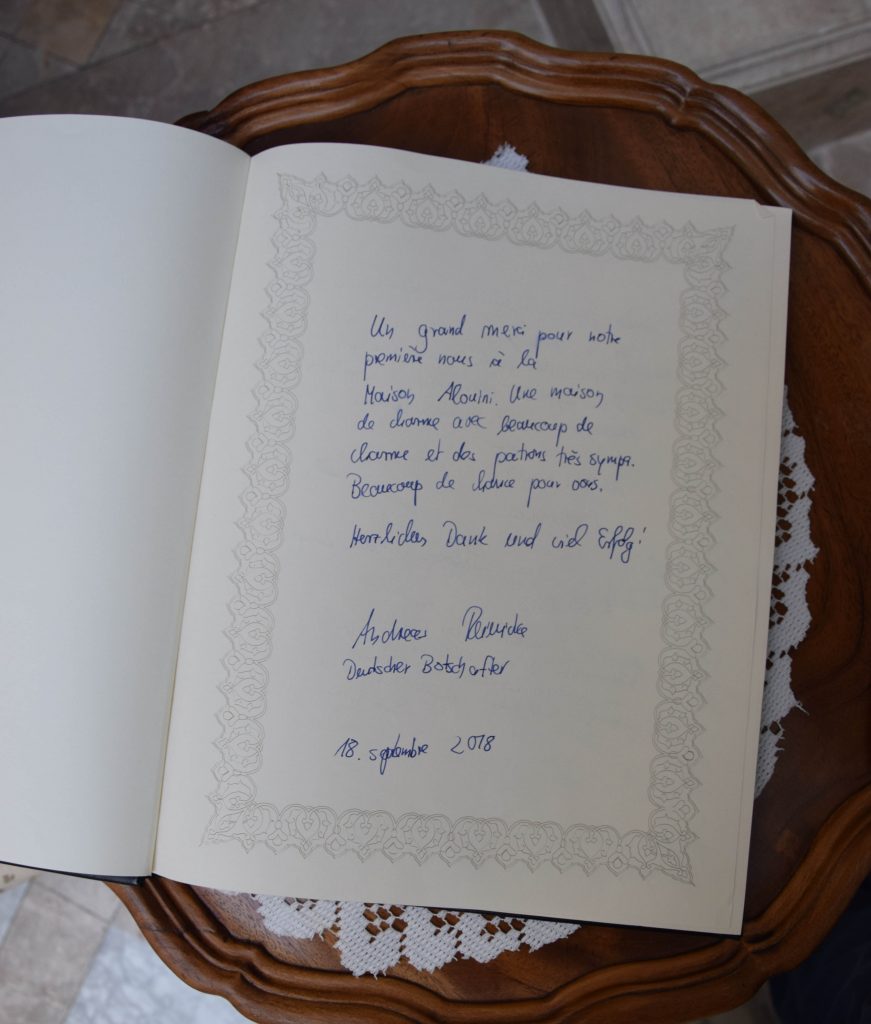 Un grand merci pour notre
première nous à la
Maison Alouini. Une maison
de charme avec beaucoup de
charme et des patrons très sympa.
Beaucoup de chance pour vous.
Herzlichen Dank und viel Erfolg!
Andreas
Deutscher Botschafter
18. septembre 2018